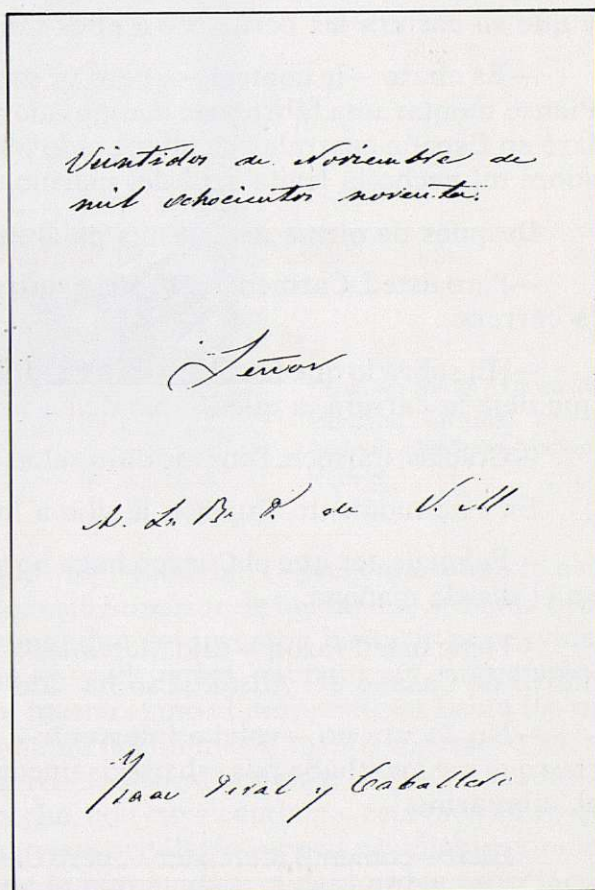 Veintidos de Noviembre de
mil ochocientos noventa.
Señor
A. L. R. P. de V. M
Ysaac Peral y Caballero